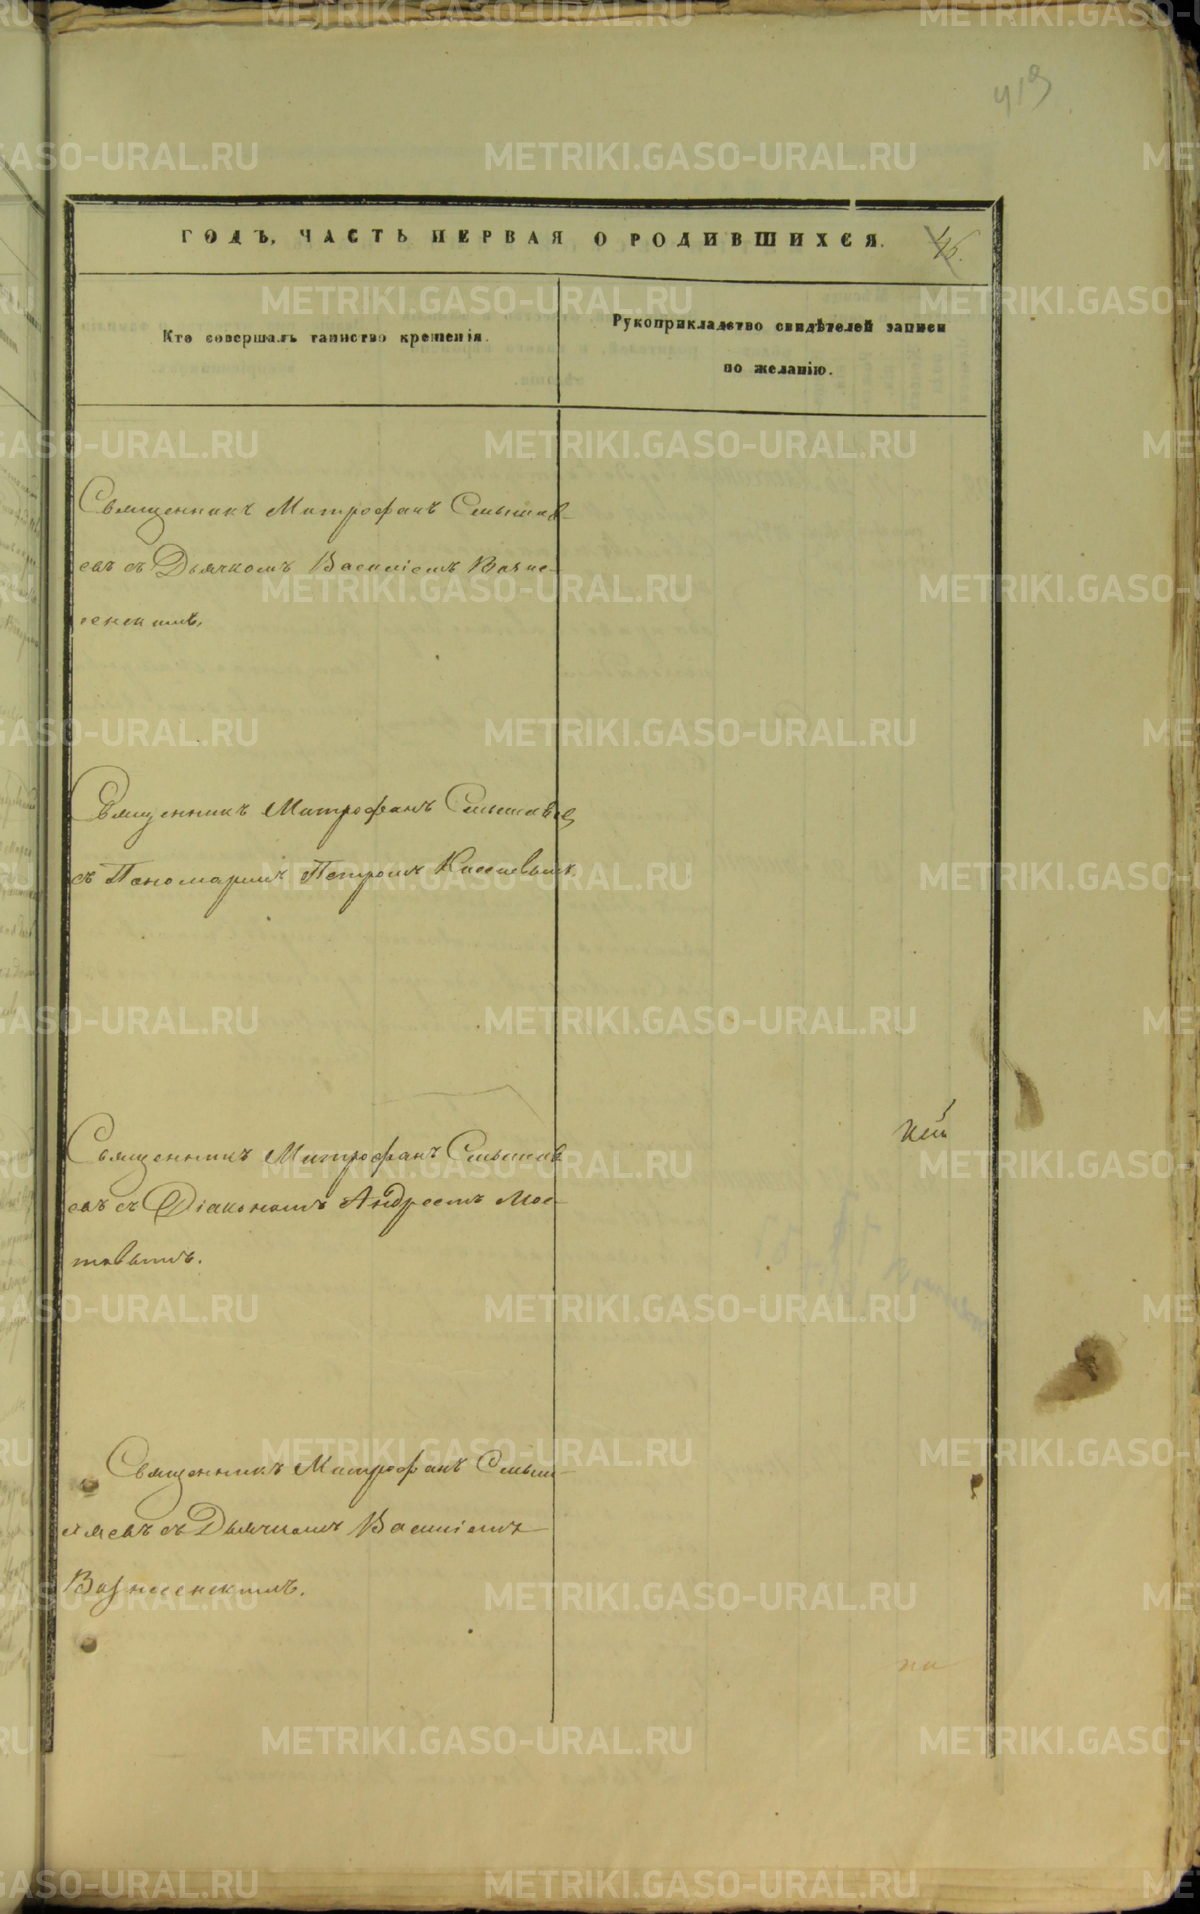 419
ГОДЪ, ЧАСТЬ ПЕРВАЯ О РОДИВШИХСЯ. 46.
Кто совершалъ таинство крещенія.
Рукоприкладство свидѣтелей записи
по желанію.
Священникъ Митрофанъ Смышля-
евъ съ Дьячкомъ Василіемъ Возне-
сенскимъ.
Священникъ Митрофанъ Смышляев
съ Пономаремъ Петромъ
Священникъ Митрофанъ Смышля
евъ съ Діакономъ Андреемъ Мос-
товымъ.
Священникъ Митрофанъ Смыш-
ляевъ съ Дьячкомъ Василіемъ
Вознесенскимъ.
METRIKI.GASO-URAL.RU